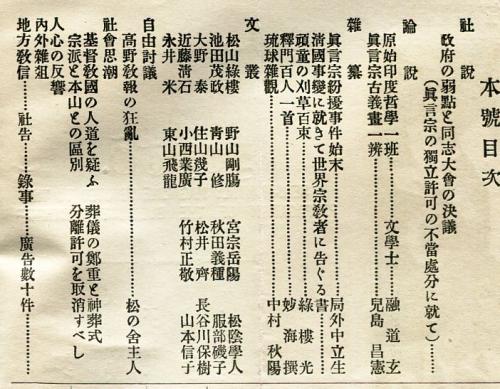 本號目次
社説
政府の弱點と同志大會の決議
(眞言宗の獨立許可の不當處分に就て)……
論説
原始印度哲學一班……文學士 融道玄
眞言宗古義畫一辨……兒島昌憲
雜纂
眞言宗紛擾事件始末……局外中立生
清國事變に就きて世界宗敎者に告ぐる書……綠樓光
頑童の刈草百束……
釋門百人一首……妙海撰
琉球雜觀……中村秋陽
文叢
松山綠樓 野山剛膓 宮宗岳陽 松陰學人
池田茂政 靑山修 秋田義種 服部磯子
大野泰 住山幾子 松井齊 長谷川保樹
近藤淸石 小西業廣 竹村正敬 山本信子
永井米 東山飛龍
自由討議
高野敎報の狂亂……松の舍主人
社會思潮
基督敎國の人道を疑ふ 葬儀の鄭重と神葬式
宗派と本山との區別 分離許可を取消すべし
人心の反響
內外雜俎
地方敎信……社告……錄事……廣告數十件